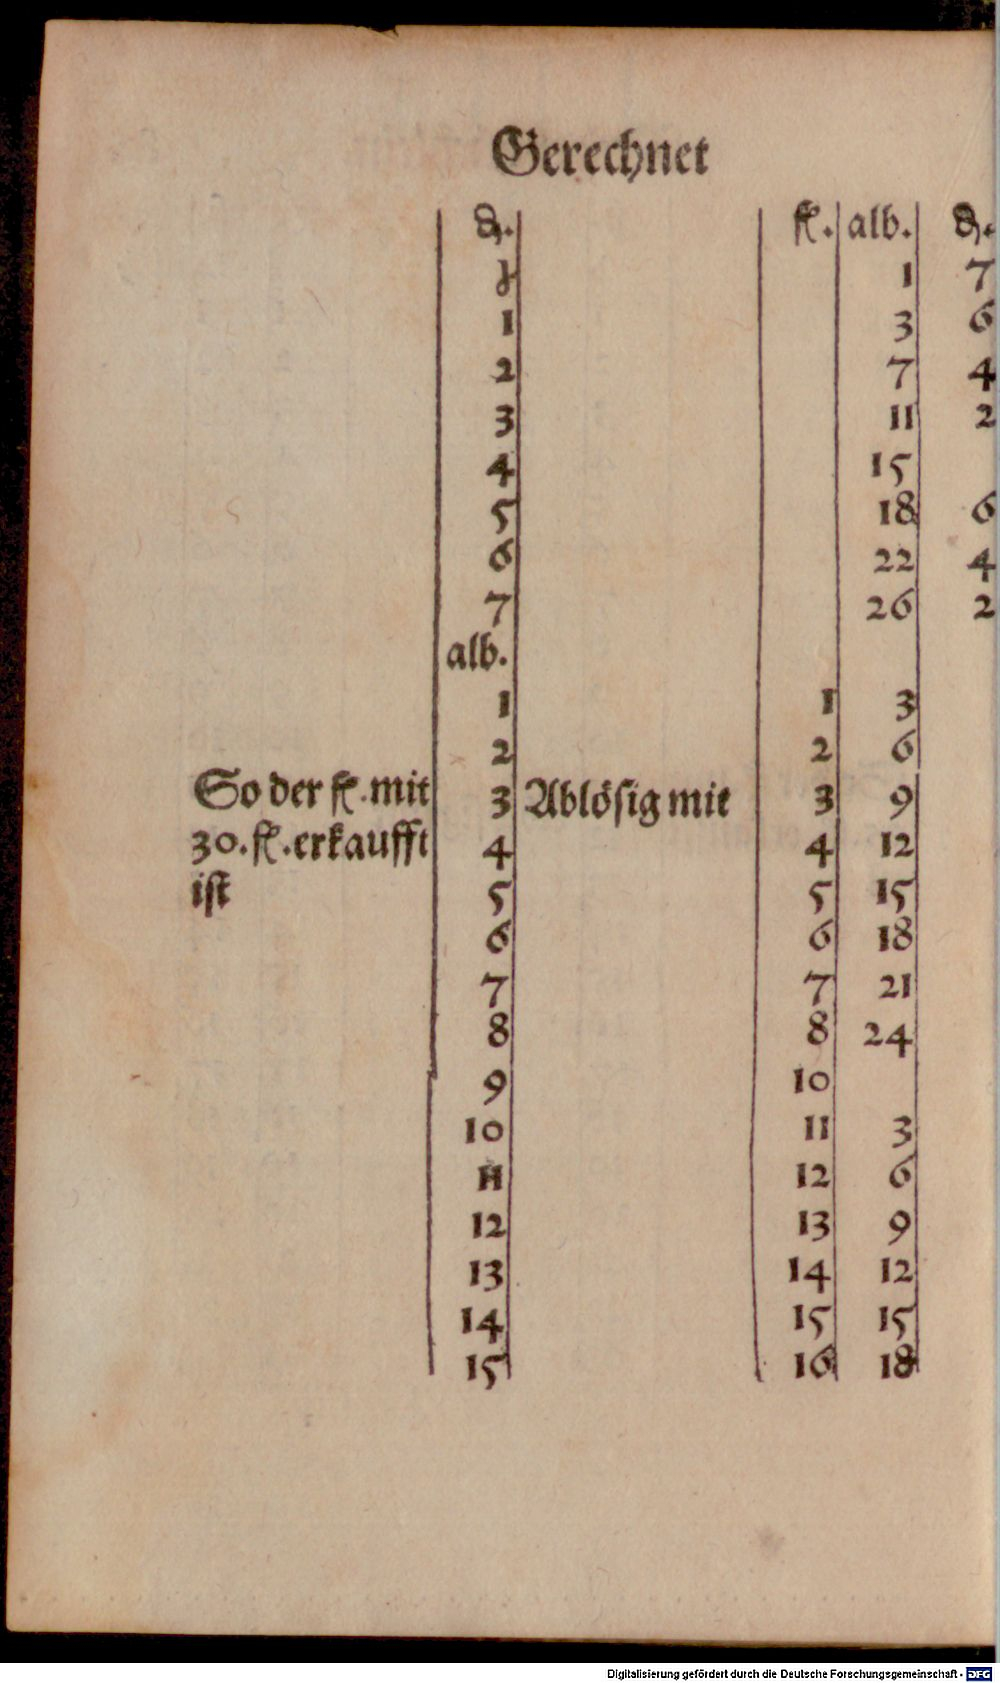 Gerechnet
₰. fl. alb. ₰.
½ 1 7
1 3 6
2 7 4
3 11 2
4 15
5 18 6
6 22 4
7 26 2
alb.
1 1 3
2 2 6
So der fl. mit 3 Ablösig mit 3 9
30. fl. erkaufft 4 4 12
ist 5 5 15
6 6 18
7 7 21
8 8 24
9 10
10 11 3
11 12 6
12 13 9
13 14 12
14 15 15
15 16 18
Digitalisierung gefördert durch die Deutsche Forschungsgemeinschaft - DFG